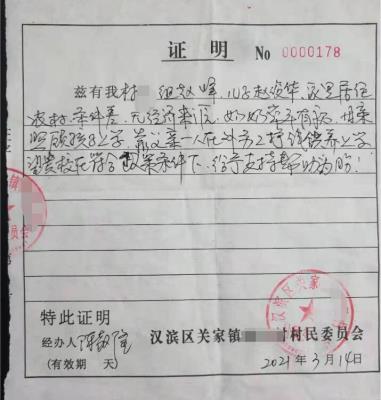 证明 No 0000178
兹有我村 组赵峰，儿子赵俊华，家里居住
农村，条件差，无经济来源，奶奶常年有病，母亲
照顾孩子上学，靠父亲一人在外务工挣钱供养上学
望贵校在符合政策条件下，给予支持帮助为盼！
特此证明
经办人
(有效期 天)
汉滨区关家镇 村民委员会
2021年3月14日
汉滨区关家
镇
员会